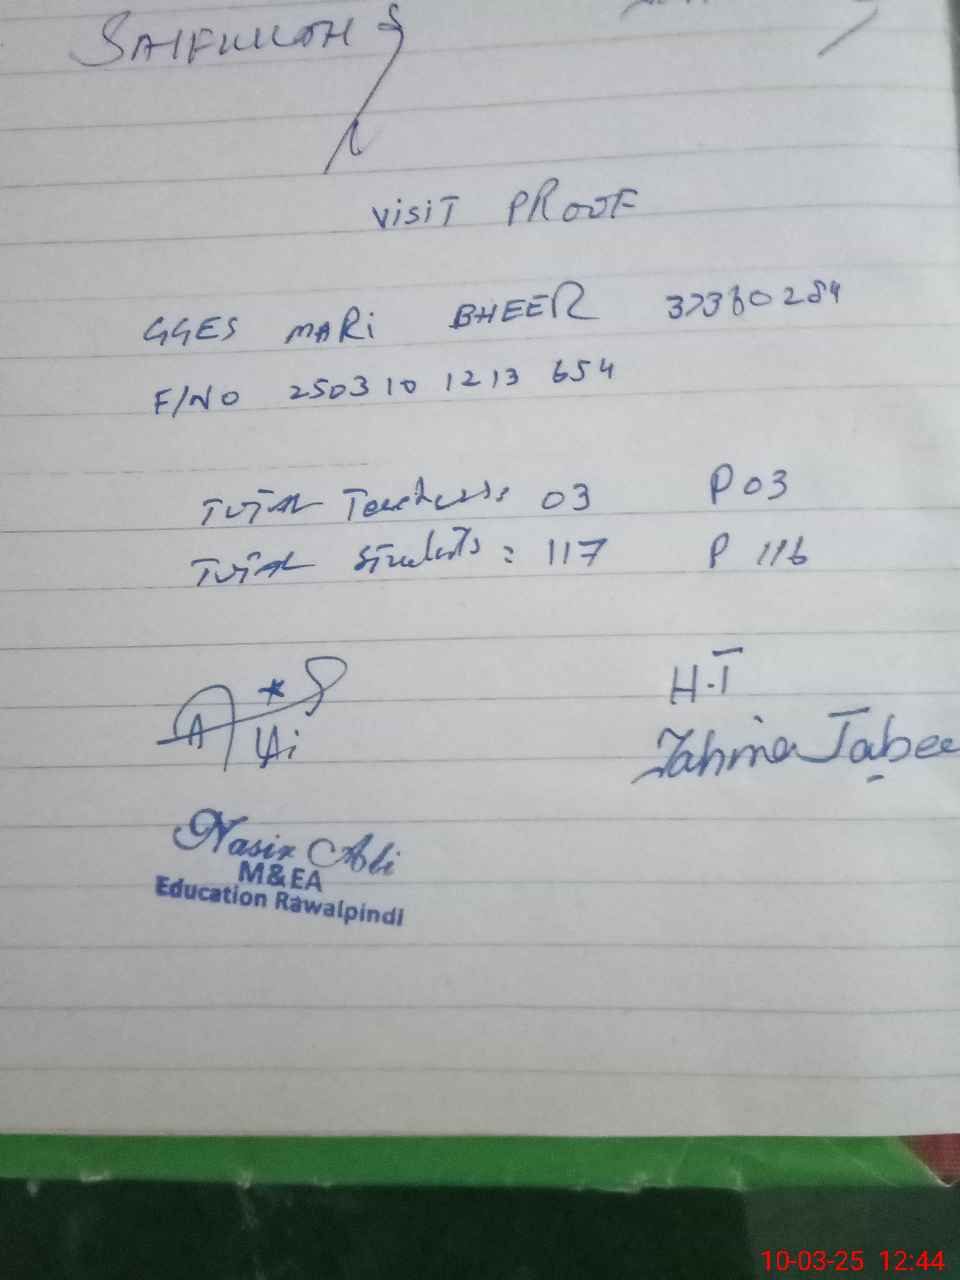 SAIFULLAH
VISIT PROOF
GGES MARI BHEER 37380284
F/NO 250310 1213 654
TOTAL Teachers 03 P 03
TOTAL Students : 117 P 116
H.T
Tahmina Jabee
Nasir Ali
M&EA
Education Rawalpindi
10-03-25 12:44